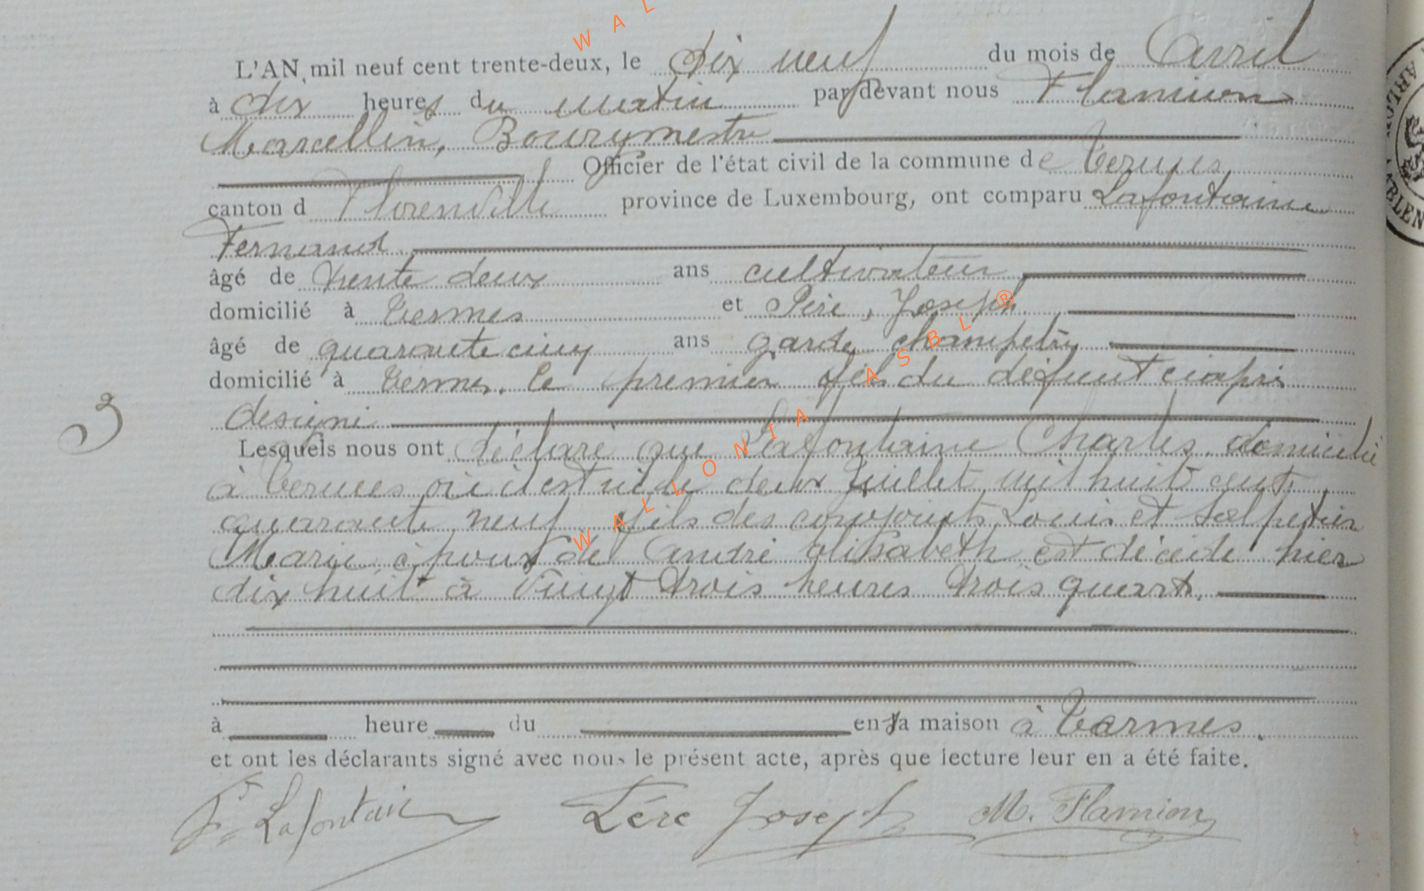 L'AN mil neuf cent trente-deux, le dix neuf du mois de Avril
à dix heures du matin par devant nous Flamion
Marcellin, Bourgmestre
Officier de l'état civil de la commune de Termes
canton d Florenville province de Luxembourg, ont comparu Lafontaine
Fernand
âgé de trente deux ans cultivateur
domicilié à Termes et Père, Joseph
âgé de quarante cinq ans garde champêtre
domicilié à Termes. le premier fils du défunt ciaprès
désigné
3
Lesquels nous ont déclaré que Lafontaine Charles, domicilié
à Termes où il est né le deux Juillet mil huit cent
quarante neuf fils des conjoints Louis et
Marie époux de André Elisabeth est décédé hier
dix huit à vingt trois heures trois quarts.
à heure du en sa maison à Termes.
et ont les déclarants signé avec nous le présent acte, après que lecture leur en a été faite.
F. Lafontaine Père Joseph M. Flamion
WALLONIA ASBL ®
WAL
ARLON